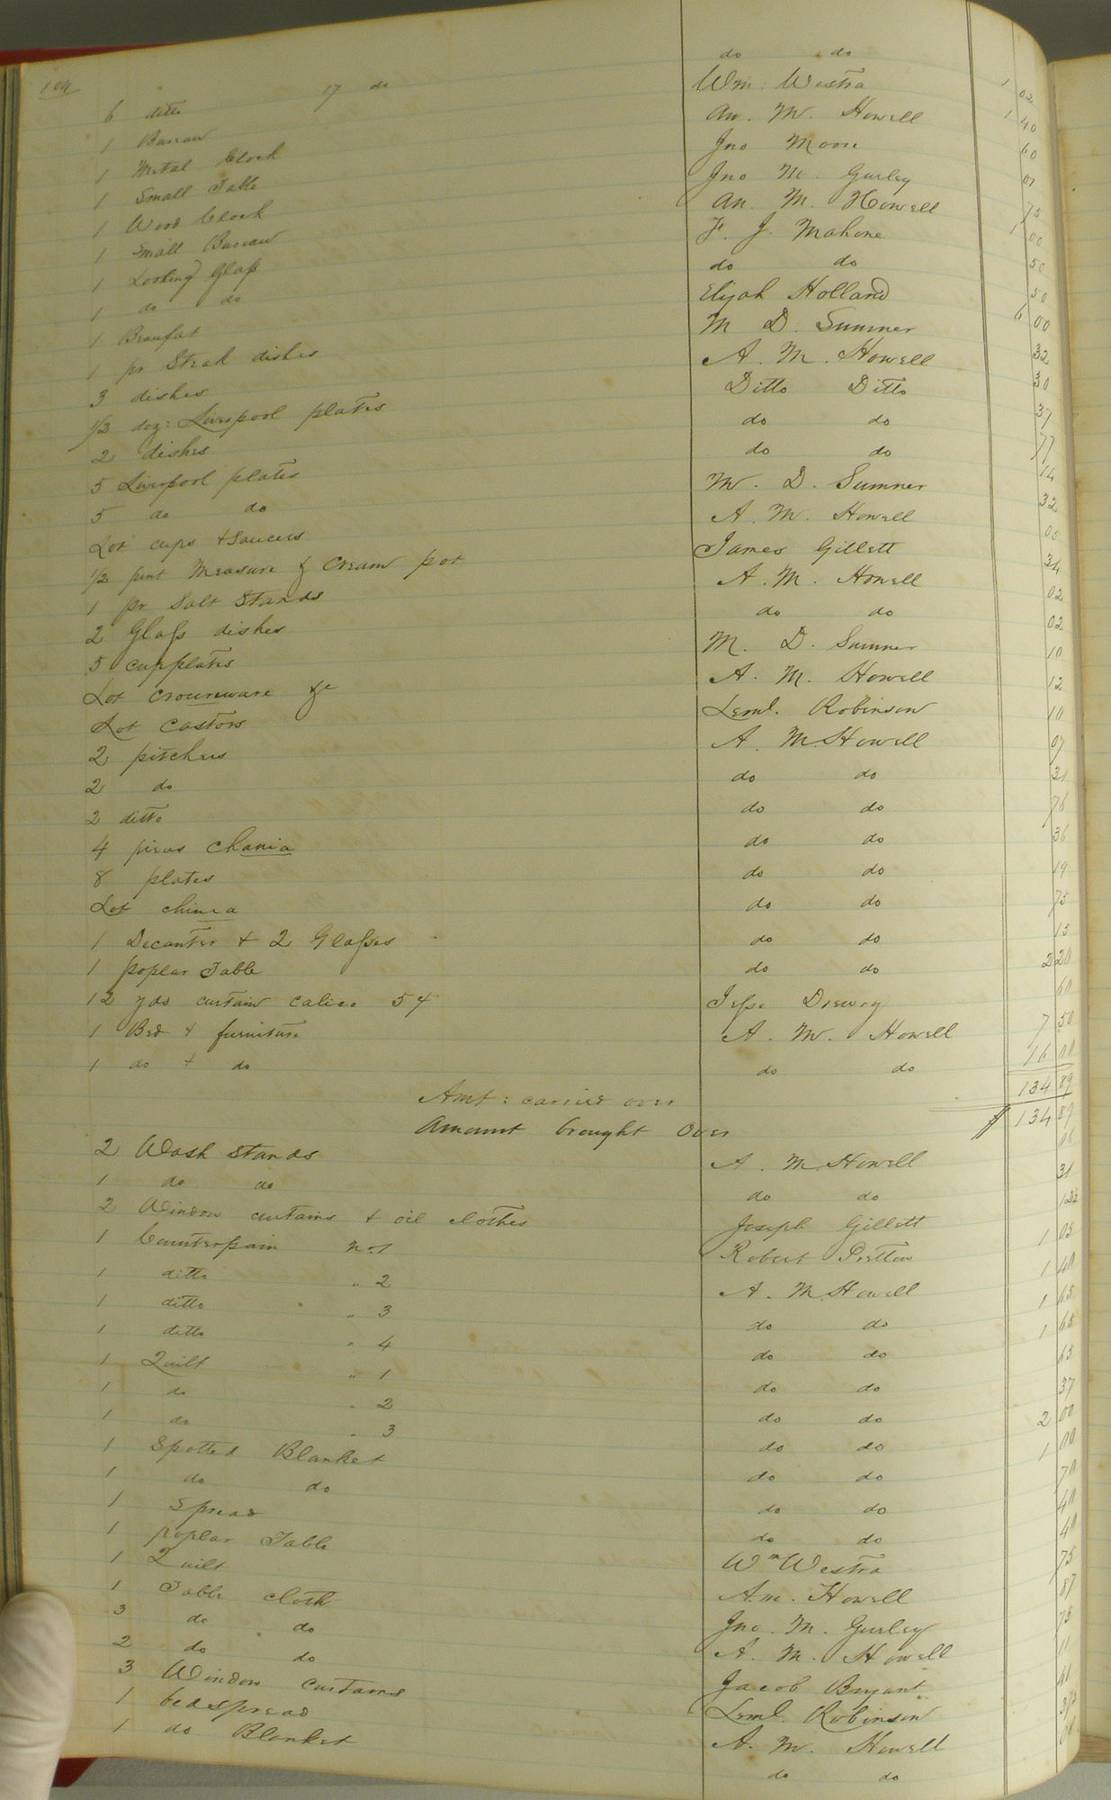 104
6 ditto 17 do do do 1 02
1 Bureau Wm: Westra 1 40
1 Metal Clock An. M. Howell 60
1 Small Table Jno Moore 01
1 Wood Clock Jno M. Gurley 75
1 Small Bureau An. M. Howell 1 00
1 Looking Glass F. J. Mahone 50
1 do do do do 50
1 Beaufat Elijah Holland 6 00
1 pr Steak dishes M D. Sumner 32
3 dishes A. M. Howell 30
1/2 doz: Liverpool plates Ditto Ditto 37
2 dishes do do 77
5 Liverpool plates do do 14
5 do do M. D. Sumner 32
Lot cups + Saucers A. M. Howell
1/2 pint Measure & Cream pot James Gillett 34
1 pr Salt Stands A. M. Howell 02
2 Glass dishes do do 02
5 cupplates M. D. Sumner 10
Lot crounware &c A. M. Howell 12
Lot Castors Leml. Robinson 10
2 pitchers A. M Howell 07
2 do do do 21
2 ditto do do 76
4 pieces chania do do 36
8 plates do do 19
Lot china do do 75
1 Decanter + 2 Glasses do do 15
1 poplar Table do do 2 20
12 yds curtain calico 54 Jesse Drewry 60
1 Bed + furniture A. M. Howell 7 50
1 do + do do do 16 00
Amt: carried over 134 89
Amount brought Over $ 134 89
2 Wash Stands A. M Howell
1 do do do do 31
2 Window curtains + oil clothes Joseph Gillett
1 Counterpain No 1 Robert Pretlow 1 05
1 ditto " 2 A. M Howell 1 40
1 ditto " 3 do do 1 65
1 ditto " 4 do do 1 65
1 Quilt " 1 do do 65
1 do " 2 do do 37
1 do " 3 do do 2 00
1 Spotted Blanket do do 1 00
1 do do do do 70
1 Spread do do 40
1 poplar Table Wm Westra 40
1 Quilt A.m. Howell 75
1 Table cloth Jno. M. Gurley 87
3 do do A. M. Howell 75
2 do do Jacob Bryant 11
3 Window curtains Leml. Robinson 41
1 bedspread A. M. Howell
1 do Blanket do do